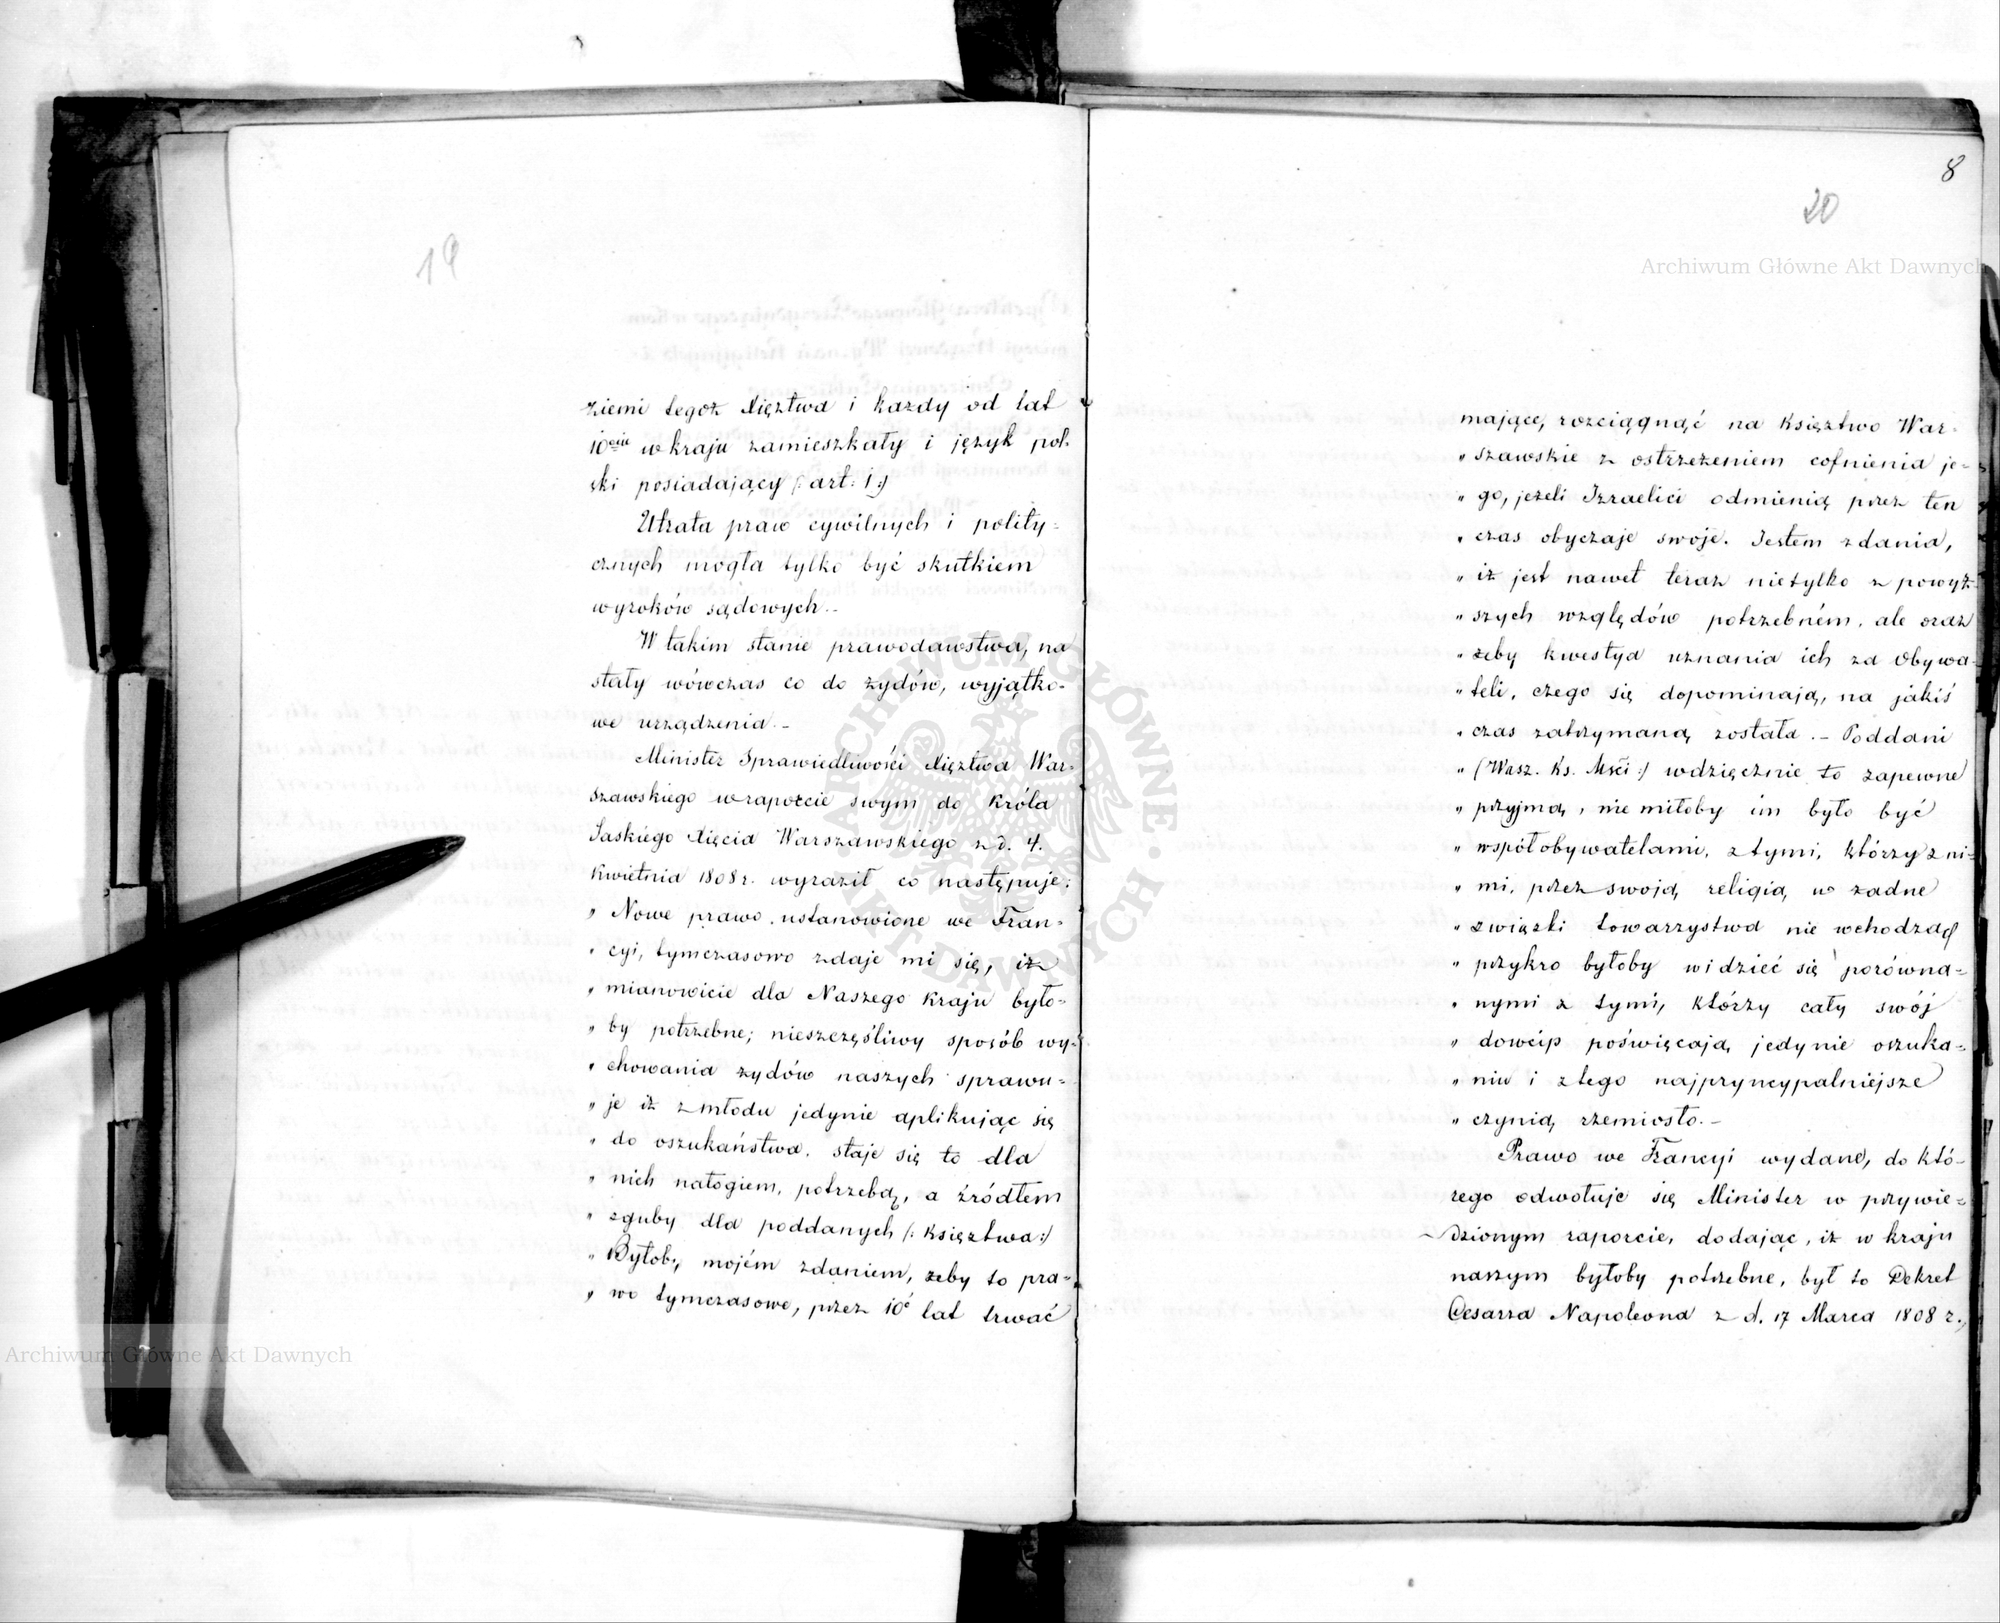 19
ziemi tegoż Xięztwa i każdy od lat
10ciu w kraju zamieszkały i język pol-
ski posiadający (: art: 1:)
Utrata praw cywilnych i polity-
cznych mogła tylko być skutkiem
wyroków sądowych.-
W takim stanie prawodawstwa, na
stały wówczas co do żydów, wyjątko-
we urządzenia.-
Minister Sprawiedliwości Xięztwa War-
szawskiego w raporcie swym do Króla
Saskiego Xięcia Warszawskiego z d. 4.
Kwietnia 1808 r. wyraził co następuje:
„ Nowe prawo ustanowione we Fran-
„ cyi, tymczasowo zdaje mi się, iż
„ mianowicie dla Naszego kraju było-
„ by potrzebne; nieszczęśliwy sposób wy-
„ chowania żydów naszych sprawu-
„ je iż z młodu jedynie aplikując się
„ do oszukaństwa, staje się to dla
„ nich nałogiem, potrzebą, a źródłem
„ zguby dla poddanych (: Księztwa:)
„ Byłoby mojém zdaniem, żeby to pra-
„ wo tymczasowe, przez 10ć lat trwać
8
20
mające, rozciągnąć na Księztwo War-
„ szawskie z ostrzeżeniem cofnienia je-
„ go, jeżeli Izraelici odmienią przez ten
„ czas obyczaje swoje. Jestem zdania,
„ iż jest nawet teraz nietylko z powyż-
„ szych względów potrzebném, ale oraz
„ żeby kwestya uznania ich za Obywa-
„ teli, czego się dopominają, na jakiś
„ czas zatrzymaną została.- Poddani
„ (Wasz. Ks. Mści:) wdzięcznie to zapewne
„ przyjmą, nie miłoby im było być
„ współobywatelami, z tymi, którzy z ni-
„ mi, przez swoją religią, w żadne
„ związki towarzystwa nie wchodzą
„ przykro byłoby widzieć się porówna-
„ nymi z tymi, którzy cały swój
„ dowcip poświęcają jedynie oszuka-
„ niu i z tego najpryncypalniejsze
„ czynią rzemiosło.-
Prawo we Francyi wydane, do któ-
rego odwołuje się Minister w przywie-
dzionym raporcie, dodając, iż w kraju
naszym byłoby potrzebne, był to Dekret
Cesarza Napoleona z d. 17 Marca 1808 r.,
Archiwum Główne Akt Dawnych
Archiwum Główne Akt Dawnych
ARCHIWUM GŁÓWNE
AKT DAWNYCH